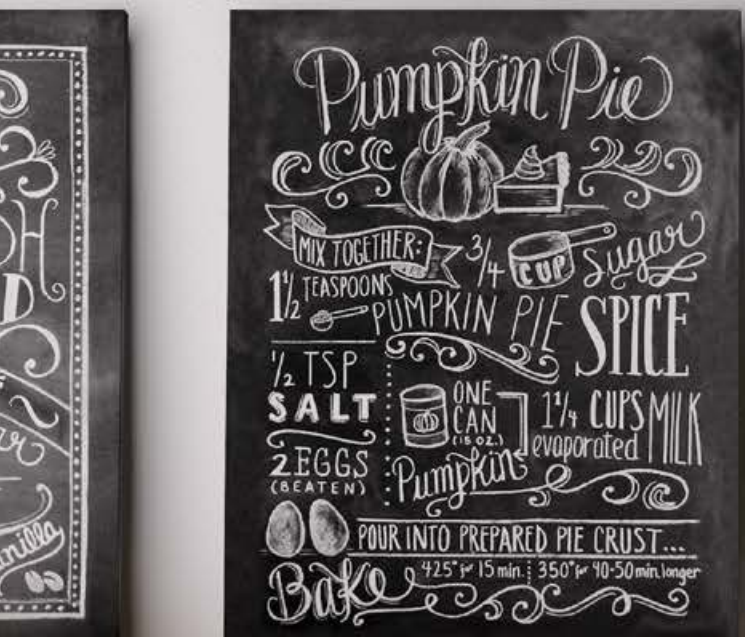 Pumpkin Pie
MIX TOGETHER:
3/4 CUP Sugar
1 1/2 TEASPOONS
PUMPKIN PIE SPICE
1/2 TSP
SALT
2 EGGS
(BEATEN)
ONE
CAN
(15 OZ.)
Pumpkin
1 1/4 CUPS
evaporated
MILK
POUR INTO PREPARED PIE CRUST...
Bake 425° for 15 min. 350° for 40-50 min. longer